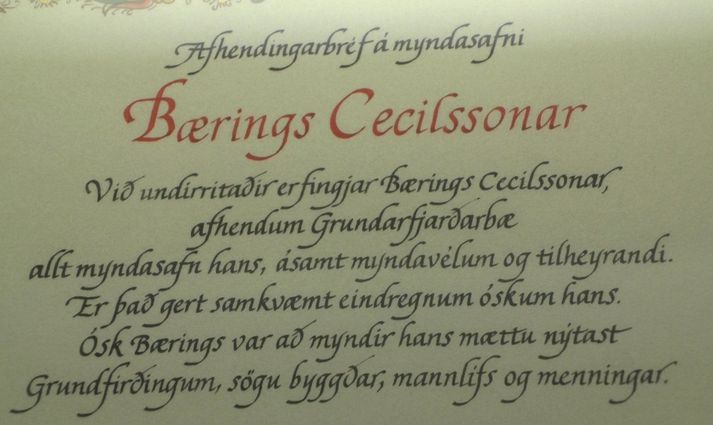 Afhendingarbréf á myndasafni
Bærings Cecilssonar
Við undirritaðir erfingjar Bærings Cecilssonar,
afhendum Grundarfjarðarbæ
allt myndasafn hans, ásamt myndavélum og tilheyrandi.
Er það gert samkvæmt eindregnum óskum hans.
Ósk Bærings var að myndir hans mættu nýtast
Grundfirðingum, sögu byggðar, mannlífs og menningar.